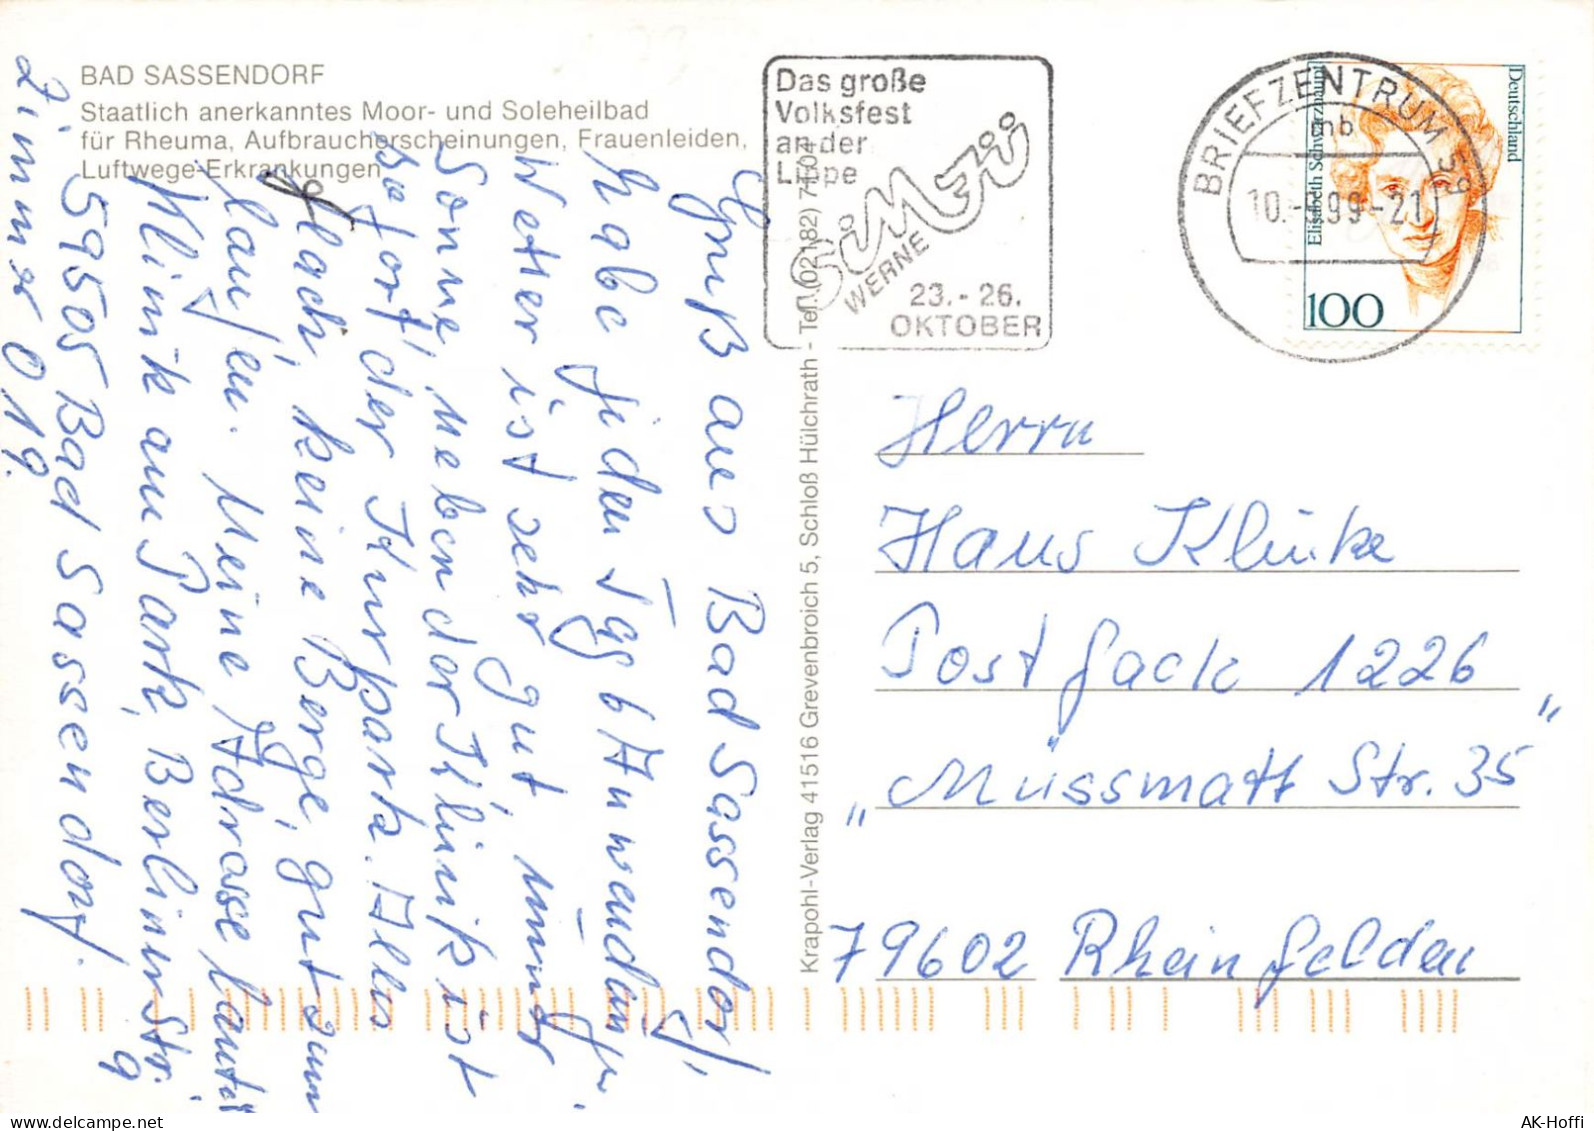 BAD SASSENDORF
Staatlich anerkanntes Moor- und Soleheilbad
für Rheuma, Aufbraucherscheinungen, Frauenleiden,
Luftwege-Erkrankungen
Gruß aus Bad Sassendorf,
habe jeden Tag 6 Anwendungen.
Wetter ist sehr gut immer
Sonne, neben der Klinik ist
sofort der Kurpark. Alles
flach, keine Berge, gut zum
laufen. Meine Adresse lautet
Klinik am Park, Berlinerstr. 9
59505 Bad Sassendorf.
Zimmer 019.
Krapohl-Verlag 41516 Grevenbroich 5, Schloß Hülchrath - Tel. (02182) 7104
Das große
Volksfest
an der
Lippe
SiMJü
WERNE
23. - 26.
OKTOBER
BRIEFZENTRUM 59
mb
10. 99-21
Deutschland
Elisabeth Schwarzhaupt
100
Herrn
Hans Klinke
Postfach 1226
„Müssmatt Str. 35"
79602 Rheinfelden
AK-Hoffi